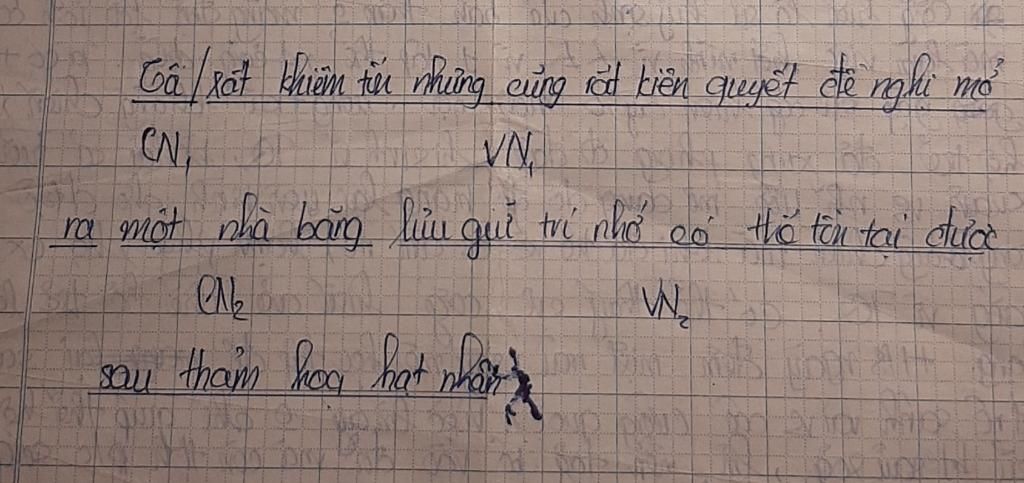 Gã / rất khiêm tốn nhưng cũng rất kiên quyết đề nghị mở
CN₁ VN₁
ra một nhà băng lưu gửi trí nhớ có thể tồn tại được
CN₂ VN₂
sau thảm hoạ hạt nhân